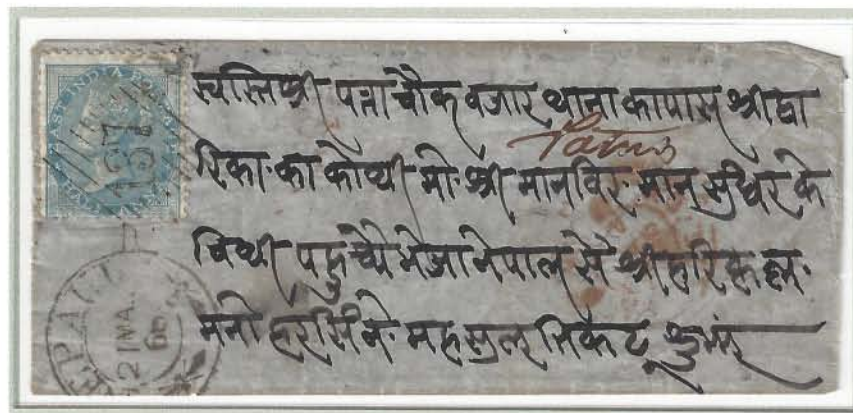 EAST INDIA
137
स्वस्तिश्री पत्ना चौक वजार थाना का पास श्री द्वा
Patna
रिका का कोथी मो श्री मानविर मान सुधर के
चिथी पहुचै भेजा नेपाल सै श्री हरि
मनोहरसिंने महसुल तिकट शुभं
NEPAL
12 MA
66